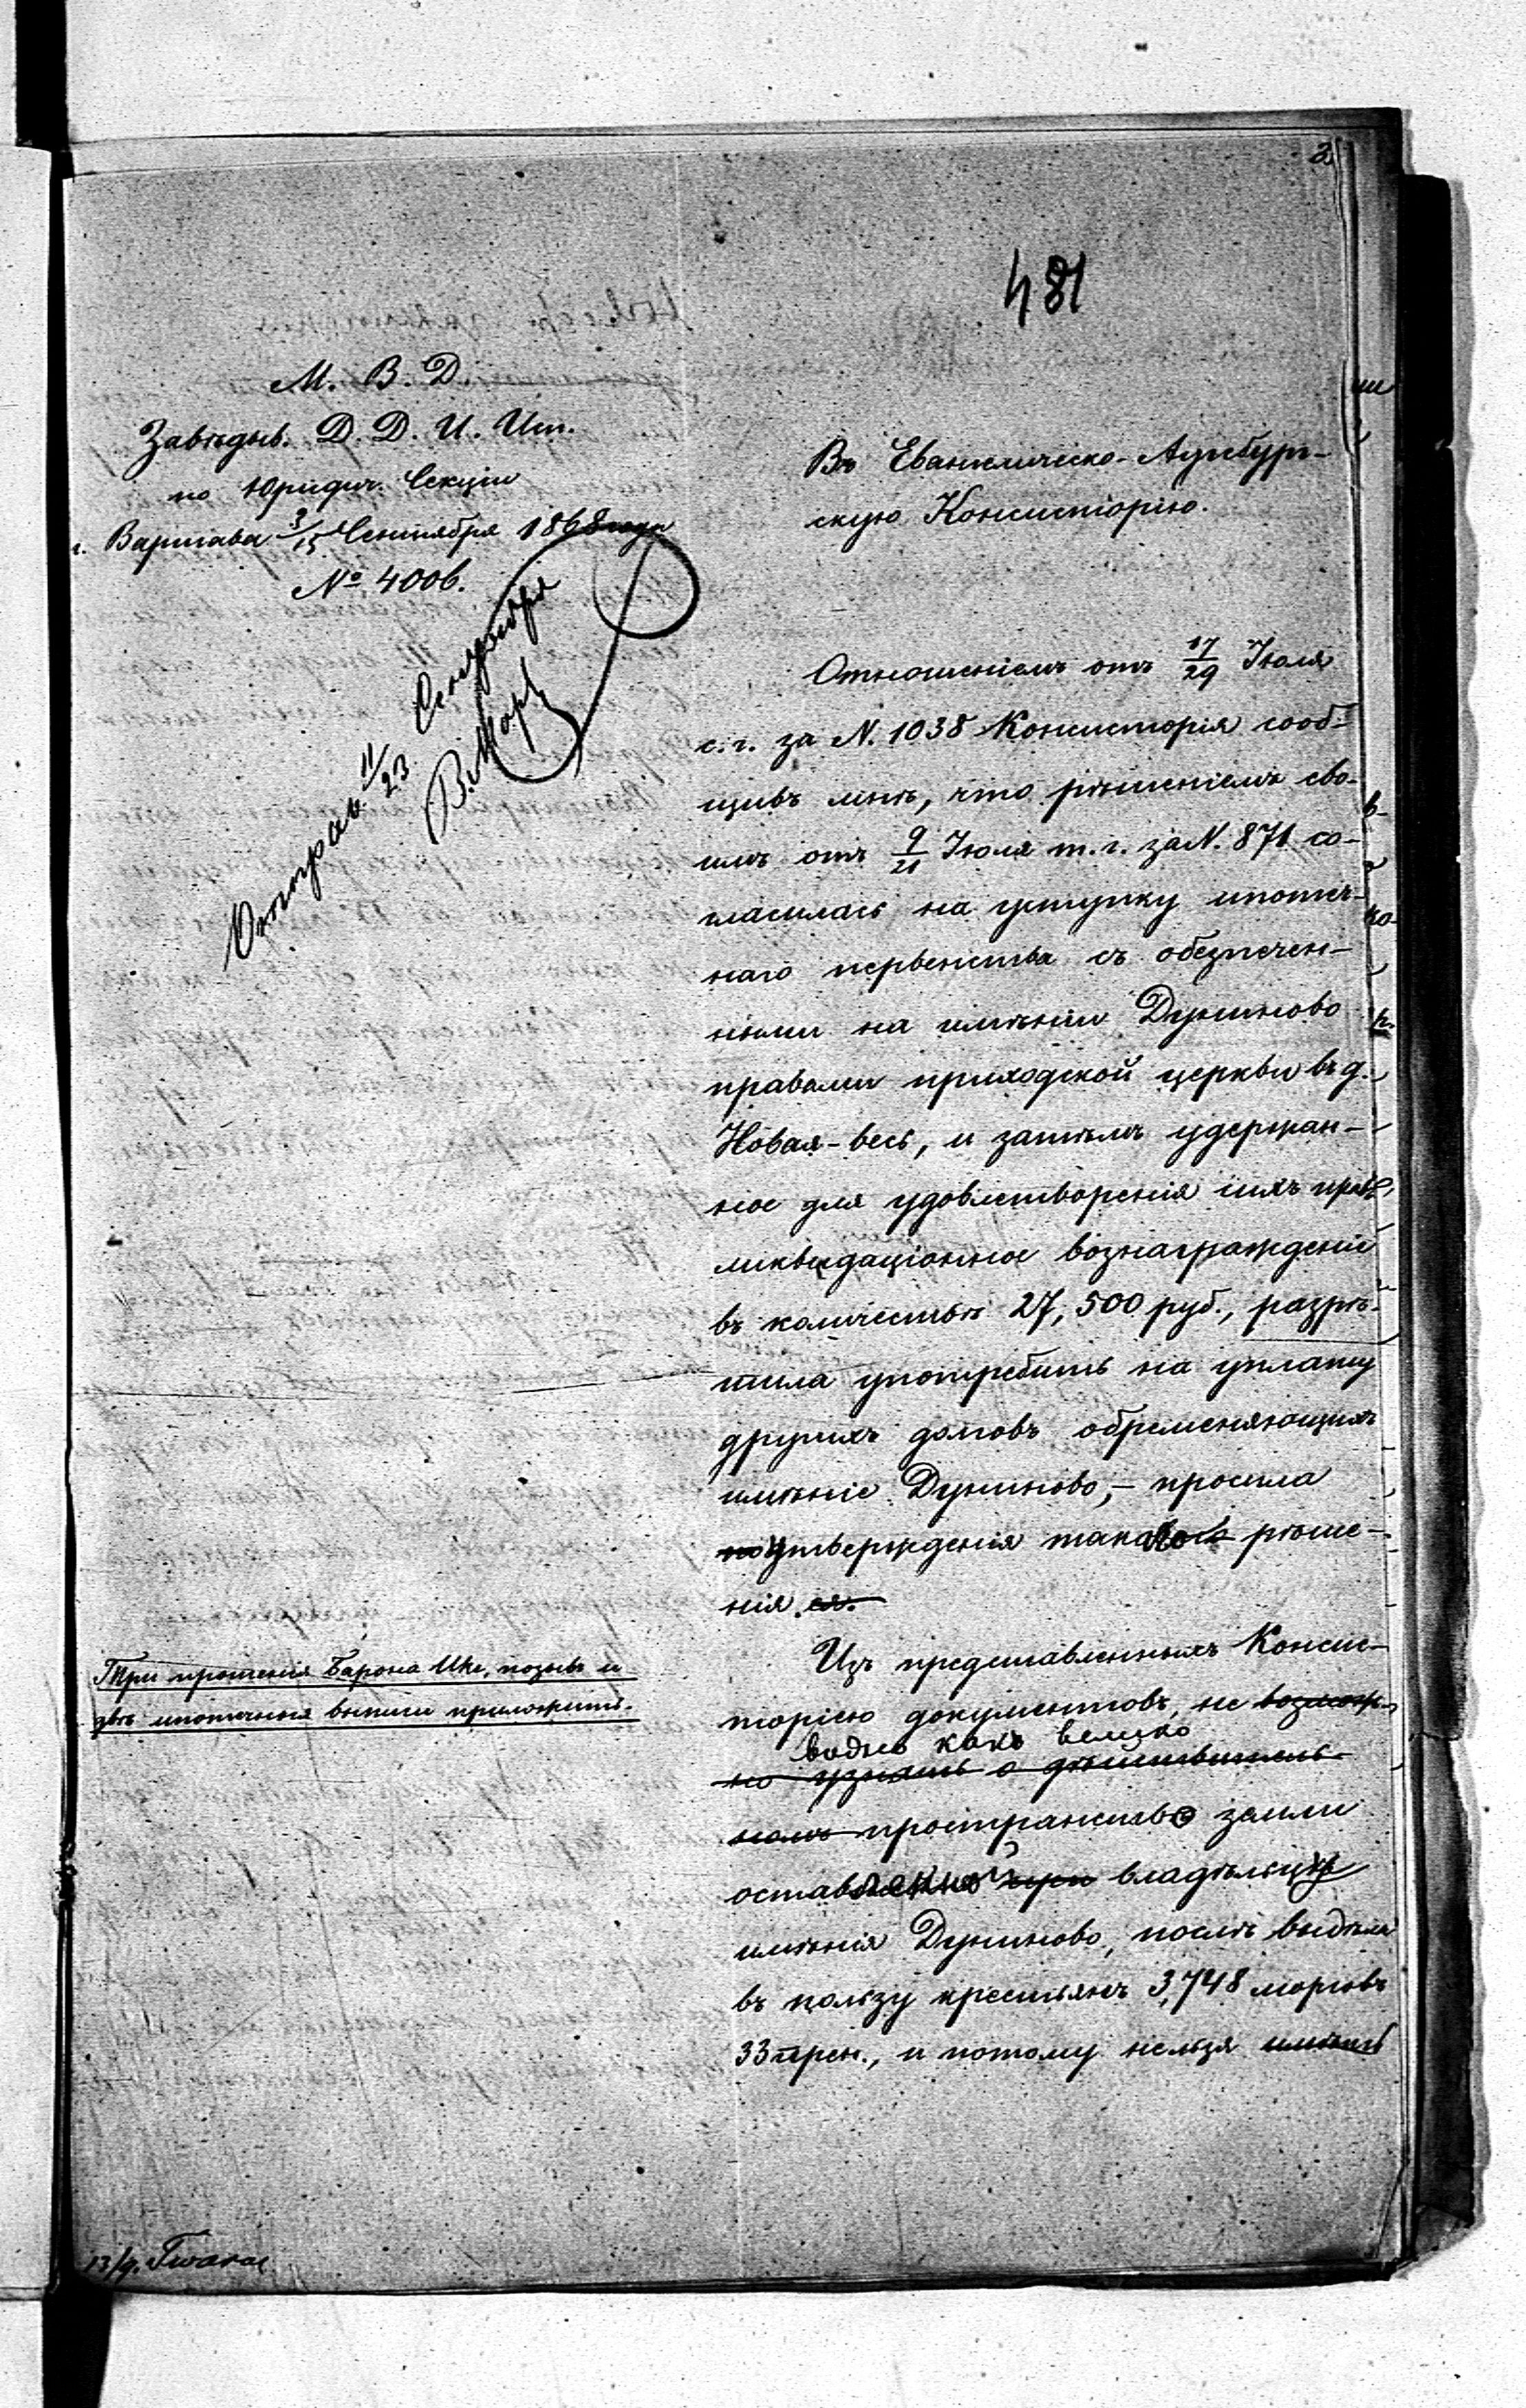 481
М. В. Д.
Завѣдыв. Д. Д. И. Исп.
по Юридич. Секціи
г. Варшава 3/15 Сентября 1868 года
№ 4006.
Отправ. 11/23 Сентября
Въ Евангелическо-Аугсбург-
скую Консисторію.
Отношеніемъ отъ 17/29 Іюля
с. г. за N. 1038 Консисторія сооб-
щивъ мнѣ, что рѣшеніемъ сво-
имъ отъ 9/21 Іюля т. г. за N. 871 со-
гласилась на уступку ипотеч-
наго первенства съ обезпечен-
ными на имѣніи Дуниново
правами приходской церкви въ д.
Новая-весь, и затѣмъ удержан-
ное для удовлетворенія сихъ правъ
ликвидаціонное вознагражденіе
въ количествѣ 27,500 руб., разрѣ-
шила употребить на уплату
другихъ долговъ обременяющихъ
имѣніе Дуниново, – просила
утвержденія таковаго рѣше-
нія.
Изъ представленныхъ Консис-
торіею документовъ, не возмож-
видно какъ велико
но узнать о дѣйствитель-
номъ пространство земли
оставленной при владѣльцу
имѣнія Дуниново, послѣ выдѣла
въ пользу крестьянъ 3,748 морговъ
33 прен., и потому нельзя имѣть
Три прошенія Барона Ике, позывъ и
двѣ ипотечныя выписи приложить.